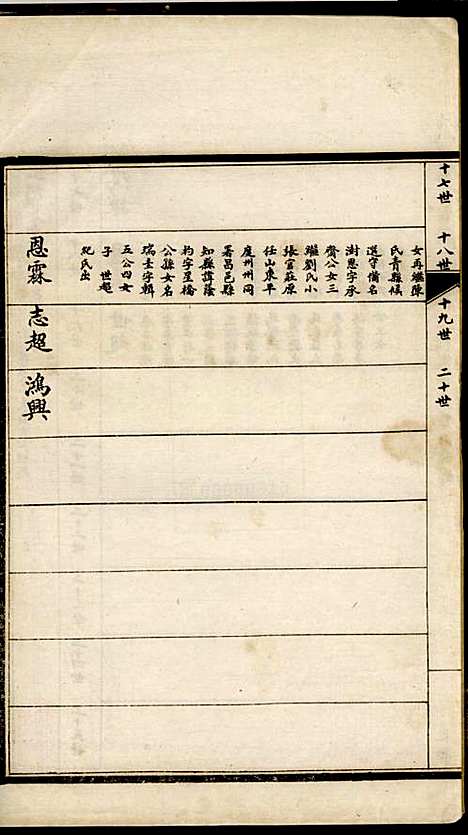 十七世
十八世
十九世
二十世
女再繼陳
氏青縣候
選守備名
澍恩字承
齋公女三
繼劉氏小
張官莊原
任山東平
度州州同
署昌邑縣
知縣諱蔭
杓字星橋
公孫女名
瑞圭字輯
五公四女
子 世超
配氏出
恩霖
志超
鴻興